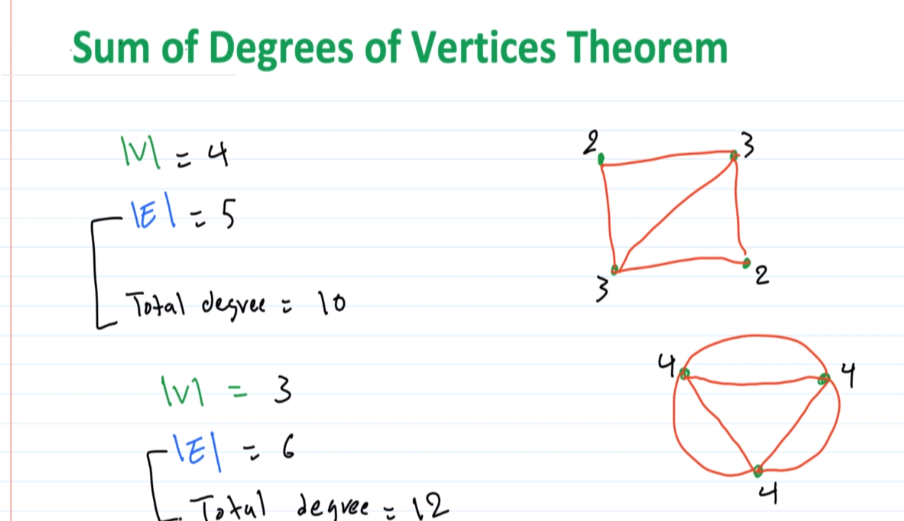 Sum of Degrees of Vertices Theorem
|V| = 4
|E| = 5
Total degree = 10
2
3
3
2
|V| = 3
|E| = 6
Total degree = 12
4
4
4